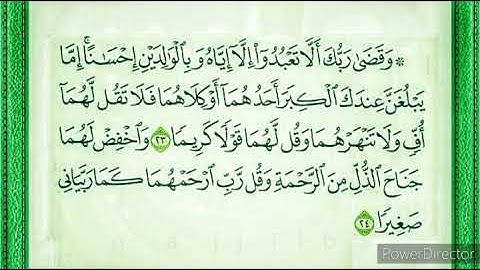 ۞ وَقَضَىٰ رَبُّكَ أَلَّا تَعْبُدُوٓا۟ إِلَّآ إِيَّاهُ وَبِٱلْوَٰلِدَيْنِ إِحْسَٰنًا ۚ إِمَّا
يَبْلُغَنَّ عِندَكَ ٱلْكِبَرَ أَحَدُهُمَآ أَوْ كِلَاهُمَا فَلَا تَقُل لَّهُمَآ
أُفٍّ وَلَا تَنْهَرْهُمَا وَقُل لَّهُمَا قَوْلًا كَرِيمًا ٢٣ وَٱخْفِضْ لَهُمَا
جَنَاحَ ٱلذُّلِّ مِنَ ٱلرَّحْمَةِ وَقُل رَّبِّ ٱرْحَمْهُمَا كَمَا رَبَّيَانِى
صَغِيرًا ٢٤
PowerDirector